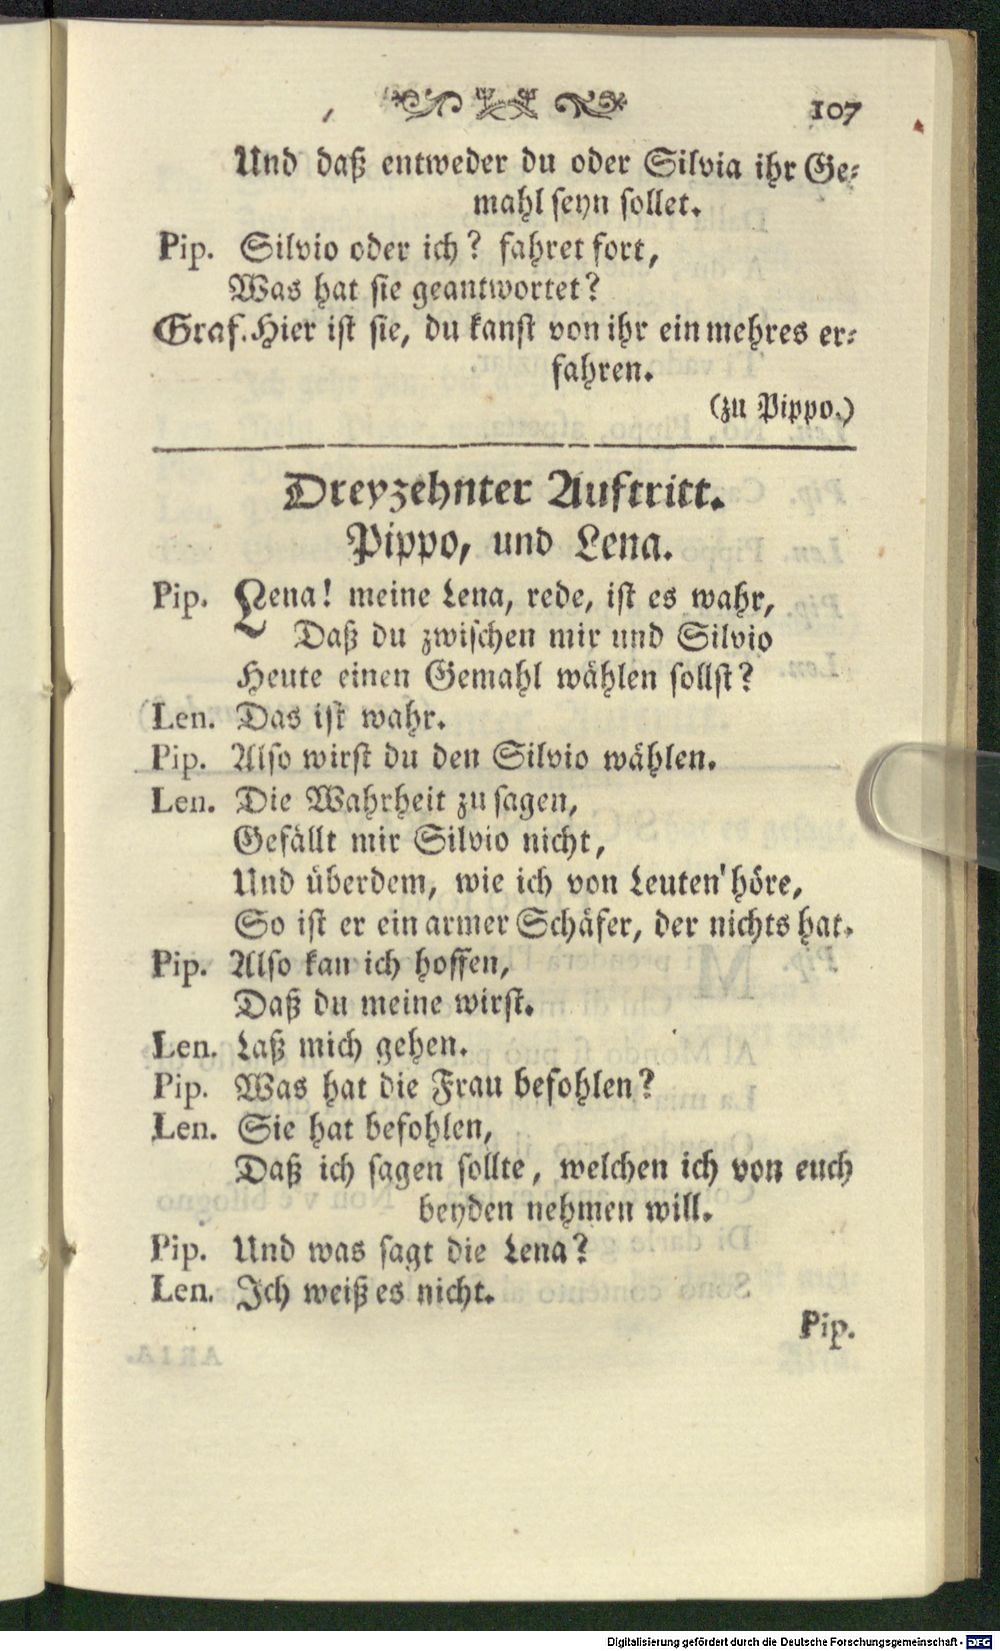 107
Und daß entweder du oder Silvia ihr Ge-
mahl seyn sollet.
Pip. Silvio oder ich? fahret fort,
Was hat sie geantwortet?
Graf. Hier ist sie, du kanst von ihr ein mehres er-
fahren.
(zu Pippo.)
Dreyzehnter Auftritt.
Pippo, und Lena.
Pip. Lena! meine Lena, rede, ist es wahr,
Daß du zwischen mir und Silvio
Heute einen Gemahl wählen sollst?
Len. Das ist wahr.
Pip. Also wirst du den Silvio wählen.
Len. Die Wahrheit zu sagen,
Gefällt mir Silvio nicht,
Und überdem, wie ich von Leuten höre,
So ist er ein armer Schäfer, der nichts hat.
Pip. Also kan ich hoffen,
Daß du meine wirst.
Len. Laß mich gehen.
Pip. Was hat die Frau befohlen?
Len. Sie hat befohlen,
Daß ich sagen sollte, welchen ich von euch
beyden nehmen will.
Pip. Und was sagt die Lena?
Len. Ich weiß es nicht.
Pip.
Digitalisierung gefördert durch die Deutsche Forschungsgemeinschaft - DFG